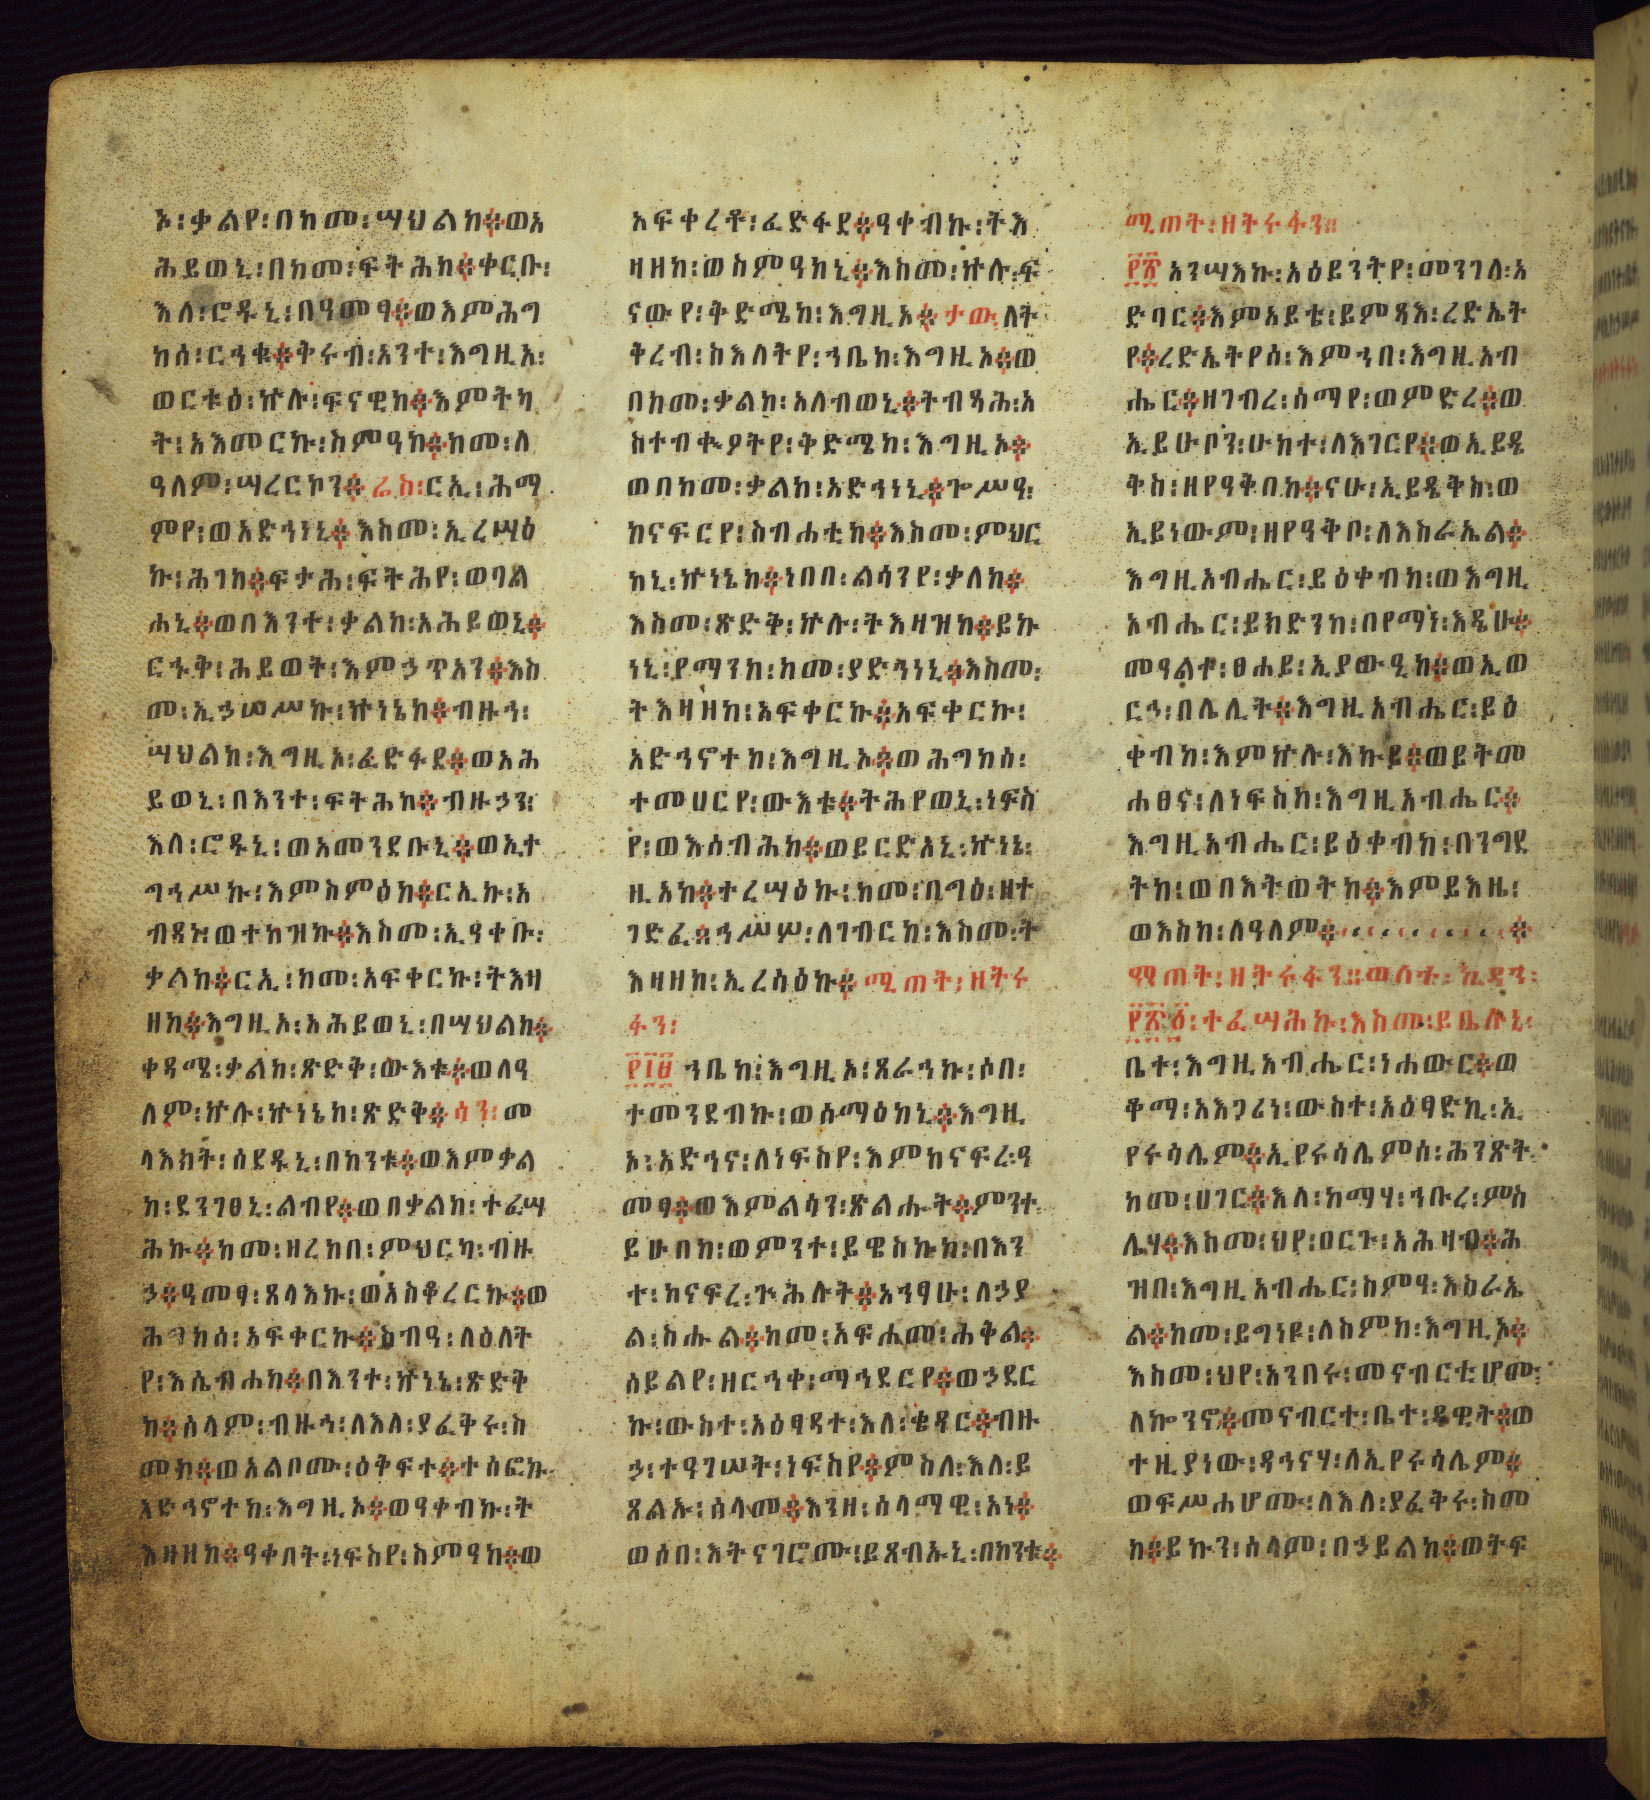 ኦ፡ቃልየ፡በከመ፡ሣህልከ፨ወአ
ሕይወኒ፡በከመ፡ፍትሕከ፨ቀርቡ፡
እለ፡ሮዱኒ፡በዓመፃ፨ወእምሕግ
ከሰ፡ርኅቁ፨ቅሩብ፡አንተ፡እግዚኦ፡
ወርቱዕ፡ኵሉ፡ፍናዊከ፨እምትካ
ት፡አእመርኩ፡ስምዓከ፨ከመ፡ለ
ዓለም፡ሣረርኮን፨ሬስ፡ርኢ፡ሕማ
ምየ፡ወአድኅነኒ፨እስመ፡ኢረሣዕ
ኩ፡ሕገከ፨ፍታሕ፡ፍትሕየ፡ወባል
ሐኒ፨ወበእንተ፡ቃልከ፡አሕይወኒ፨
ርኁቅ፡ሕይወት፡እምኃጥአን፨እስ
መ፡ኢኃሠሥኩ፡ኵነኔከ፨ብዙኅ፡
ሣህልከ፡እግዚኦ፡ፈድፋደ፨ወአሕ
ይወኒ፡በእንተ፡ፍትሕከ፨ብዙኃን፡
እለ፡ሮዱኒ፡ወአመንደቡኒ፨ወኢተ
ግኅሥኩ፡እምስምዕከ፨ርኢኩ፡አ
ብዳነ፡ወተከዝኩ፨እስመ፡ኢዓቀቡ፡
ቃለከ፨ርኢ፡ከመ፡አፍቀርኩ፡ትእዛ
ዘከ፨እግዚኦ፡አሕይወኒ፡በሣህልከ፨
ቀዳሜ፡ቃልከ፡ጽድቅ፡ውእቱ፨ወለዓ
ለም፡ኵሉ፡ኵነኔከ፡ጽድቅ፨ሳን፡መ
ላእክት፡ሰደዱኒ፡በከንቱ፨ወእምቃል
ከ፡ደንገፀኒ፡ልብየ፨ወበቃልከ፡ተፈሣ
ሕኩ፨ከመ፡ዘረከበ፡ምህርካ፡ብዙ
ኃ፨ዓመፃ፡ጸላእኩ፡ወአስቆረርኩ፨ወ
ሕገከሰ፡አፍቀርኩ፨ስብዓ፡ለዕለት
የ፡እሴብሐከ፨በእንተ፡ኵነኔ፡ጽድቅ
ከ፨ሰላም፡ብዙኅ፡ለእለ፡ያፈቅሩ፡ስ
መከ፨ወአልቦሙ፡ዕቅፍተ፨ተሰፎኩ
አድኅኖተከ፡እግዚኦ፨ወዓቀብኩ፡ት
እዛዘከ፨ዓቀበት፡ነፍስየ፡ስምዓከ፨ወ
አፍቀረቶ፡ፈድፋደ፨ዓቀብኩ፡ትእ
ዛዘከ፡ወስምዓከኒ፨እስመ፡ኵሉ፡ፍ
ናውየ፡ቅድሜከ፡እግዚኦ፨ታው፡ለት
ቅረብ፡ስእለትየ፡ኀቤከ፡እግዚኦ፨ወ
በከመ፡ቃልከ፡አለብወኒ፨ትብጻሕ፡አ
ስተብቍዖትየ፡ቅድሜከ፡እግዚኦ፨
ወበከመ፡ቃልከ፡አድኅነኒ፨ጐሥዓ፡
ከናፍርየ፡ስብሐቲከ፨እስመ፡ምህር
ከኒ፡ኵነኔከ፨ነበበ፡ልሳንየ፡ቃለከ፨
እስመ፡ጽድቅ፡ኵሉ፡ትእዛዝከ፨ይኩ
ነኒ፡የማንከ፡ከመ፡ያድኅነኒ፨እስመ፡
ትእዛዘከ፡አፍቀርኩ፨አፍቀርኩ፡
አድኅኖተከ፡እግዚኦ፨ወሕግከሰ፡
ተመሀርየ፡ውእቱ፨ትሕየወኒ፡ነፍስ
የ፡ወእሰብሕከ፨ወይርድአኒ፡ኵነኔ፡
ዚአከ፨ተረሣዕኩ፡ከመ፡በግዕ፡ዘተ
ገድፈ፨ኅሥሦ፡ለገብርከ፡እስመ፡ት
እዛዘከ፡ኢረሳዕኩ፨ሚጠት፡ዘትሩ
ፋን፡
፻፲፱ ኀቤከ፡እግዚኦ፡ጸራኅኩ፡ሶበ፡
ተመንደብኩ፡ወሰማዕከኒ፨እግዚ
ኦ፡አድኅና፡ለነፍስየ፡እምከናፍረ፡ዓ
መፃ፨ወእምልሳን፡ጽልሑት፨ምንተ፡
ይሁቡከ፡ወምንተ፡ይዌስኩከ፡በእን
ተ፡ከናፍረ፡ጕሕሉት፨አኅፃሁ፡ለኃያ
ል፡ስሑል፨ከመ፡አፍሐመ፡ሕቅል፨
ሰይልየ፡ዘርኅቀ፡ማኅደርየ፨ወኃደር
ኩ፡ውስተ፡አዕፃዳተ፡እለ፡ቄዳር፨ብዙ
ኃ፡ተዓገሠት፡ነፍስየ፨ምስለ፡እለ፡ይ
ጸልኡ፡ሰላመ፨እንዘ፡ሰላማዊ፡አነ፨
ወሶበ፡እትናገሮሙ፡ይጸብኡኒ፡በከንቱ፨
ሚጠት፡ዘትሩፋን።
፻፳ አንሣእኩ፡አዕይንትየ፡መንገለ፡አ
ድባር፨እምአይቴ፡ይምጻእ፡ረድኤት
የ፨ረድኤትየሰ፡እምኀበ፡እግዚአብ
ሔር፨ዘገብረ፡ሰማየ፡ወምድረ፨ወ
ኢይሁቦን፡ሁከተ፡ለእገርየ፨ወኢይዴ
ቅስ፡ዘየዓቅበከ፨ናሁ፡ኢይዴቅስ፡ወ
ኢይነውም፡ዘየዓቅቦ፡ለእስራኤል፨
እግዚአብሔር፡ይዕቀብከ፡ወእግዚ
አብሔር፡ይክድንከ፡በየማነ፡እዴሁ፨
መዓልቶ፡ፀሐይ፡ኢያውዒከ፨ወኢወ
ርኅ፡በሌሊት፨እግዚአብሔር፡ይዕ
ቀብከ፡እምኵሉ፡እኩይ፨ወይትመ
ሐፀና፡ለነፍስከ፡እግዚአብሔር፨
እግዚአብሔር፡ይዕቀብከ፡በንግደ
ትከ፡ወበእትወትከ፨እምይእዜ፡
ወእስከ፡ለዓለም፨
ሚጠት፡ዘትሩፋን።ወስተ፡ኪዳን፡
፻፳፩፡ተፈሣሕኩ፡እስመ፡ይቤሉኒ፡
ቤተ፡እግዚአብሔር፡ነሐውር፨ወ
ቆማ፡አእጋሪነ፡ውስተ፡አዕፃድኪ፡ኢ
የሩሳሌም፨ኢየሩሳሌምሰ፡ሕንጽት፡
ከመ፡ሀገር፨እለ፡ከማሃ፡ኅቡረ፡ምስ
ሌሃ፨እስመ፡ህየ፡ዐርጉ፡አሕዛብ፨ሕ
ዝበ፡እግዚአብሔር፡ስምዓ፡እስራኤ
ል፨ከመ፡ይግነዩ፡ለስምከ፡እግዚኦ፨
እስመ፡ህየ፡አንበሩ፡መናብርቲሆሙ፡
ለኰንኖ፨መናብርተ፡ቤተ፡ዳዊት፨ወ
ተዚያነው፡ዳኅናሃ፡ለኢየሩሳሌም፨
ወፍሥሐሆሙ፡ለእለ፡ያፈቅሩ፡ስመ
ከ፨ይኩን፡ሰላም፡በኃይልከ፨ወትፍ